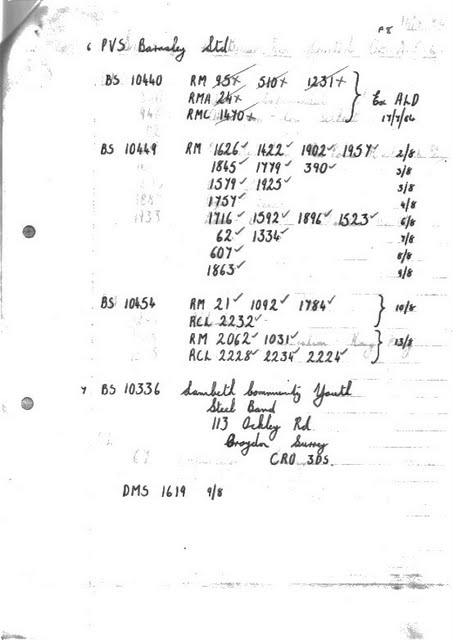 P8
6 PVS Barnsley Std
BS 10440 RM 95x 510x 1231x
RMA 24x Ex ALD
RMC 1470x 17/7/84
BS 10449 RM 1626✓ 1422✓ 1902✓ 1957✓ 2/8
1845✓ 1779✓ 390✓ 3/8
1579✓ 1925✓ 3/8
1757✓ 4/8
1716✓ 1592✓ 1896✓ 1523✓ 6/8
62✓ 1334✓ 7/8
607✓ 8/8
1863✓ 9/8
BS 10454 RM 21✓ 1092✓ 1784✓ 10/8
RCL 2232✓
RM 2062✓ 1031✓ 13/8
RCL 2228✓ 2234✓ 2224✓
7 BS 10336 Lambeth Community Youth
Steel Band
113 Ockley Rd
Croydon Surrey
CRO 3DS.
DMS 1619 9/8